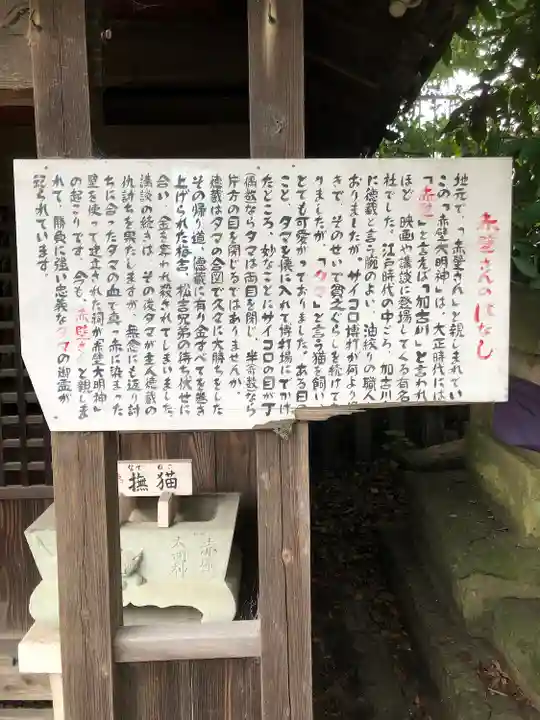 赤壁さんのはなし
地元で、「赤壁さん」と親しまれてい
この「赤壁大明神」は、大正時代には
「赤壁」と言えば「加古川」と言われ
ほど、映画や講談に登場してくる有名
社でした。江戸時代の中ごろ、加古川
に徳蔵と言う腕のよい、油絞りの職人
おりましたが、サイコロ博打が何より
きで、そのせいで貧乏ぐらしを続けて
りましたが、「タマ」と言う猫を飼い
とても可愛がっておりました。ある日
こと、タマを懐に入れて博打場にでかけ
たところ、妙なことにサイコロの目が丁
偶数ならタマは両目を閉じ、半奇数なら
片方の目を閉じるではありませんか。
徳蔵はタマの合図で次々に大勝ちをした
その帰り道、徳蔵に有り金すべてを巻き
上げられた梅吉、松吉兄弟の待ち伏せに
合い、金を奪われ殺されてしまいました。
講談の続きは、その後タマが主人徳蔵の
仇討ちを果たしますが、無念にも返り討
ちに合ったタマの血で真っ赤に染まった
壁を使って建立された祠が赤壁大明神」
の起こりです。今も「赤壁さん」と親しま
れて、勝負に強い忠義なタマの御霊が
祀られています。
撫猫
なで ねこ
赤壁
大明神